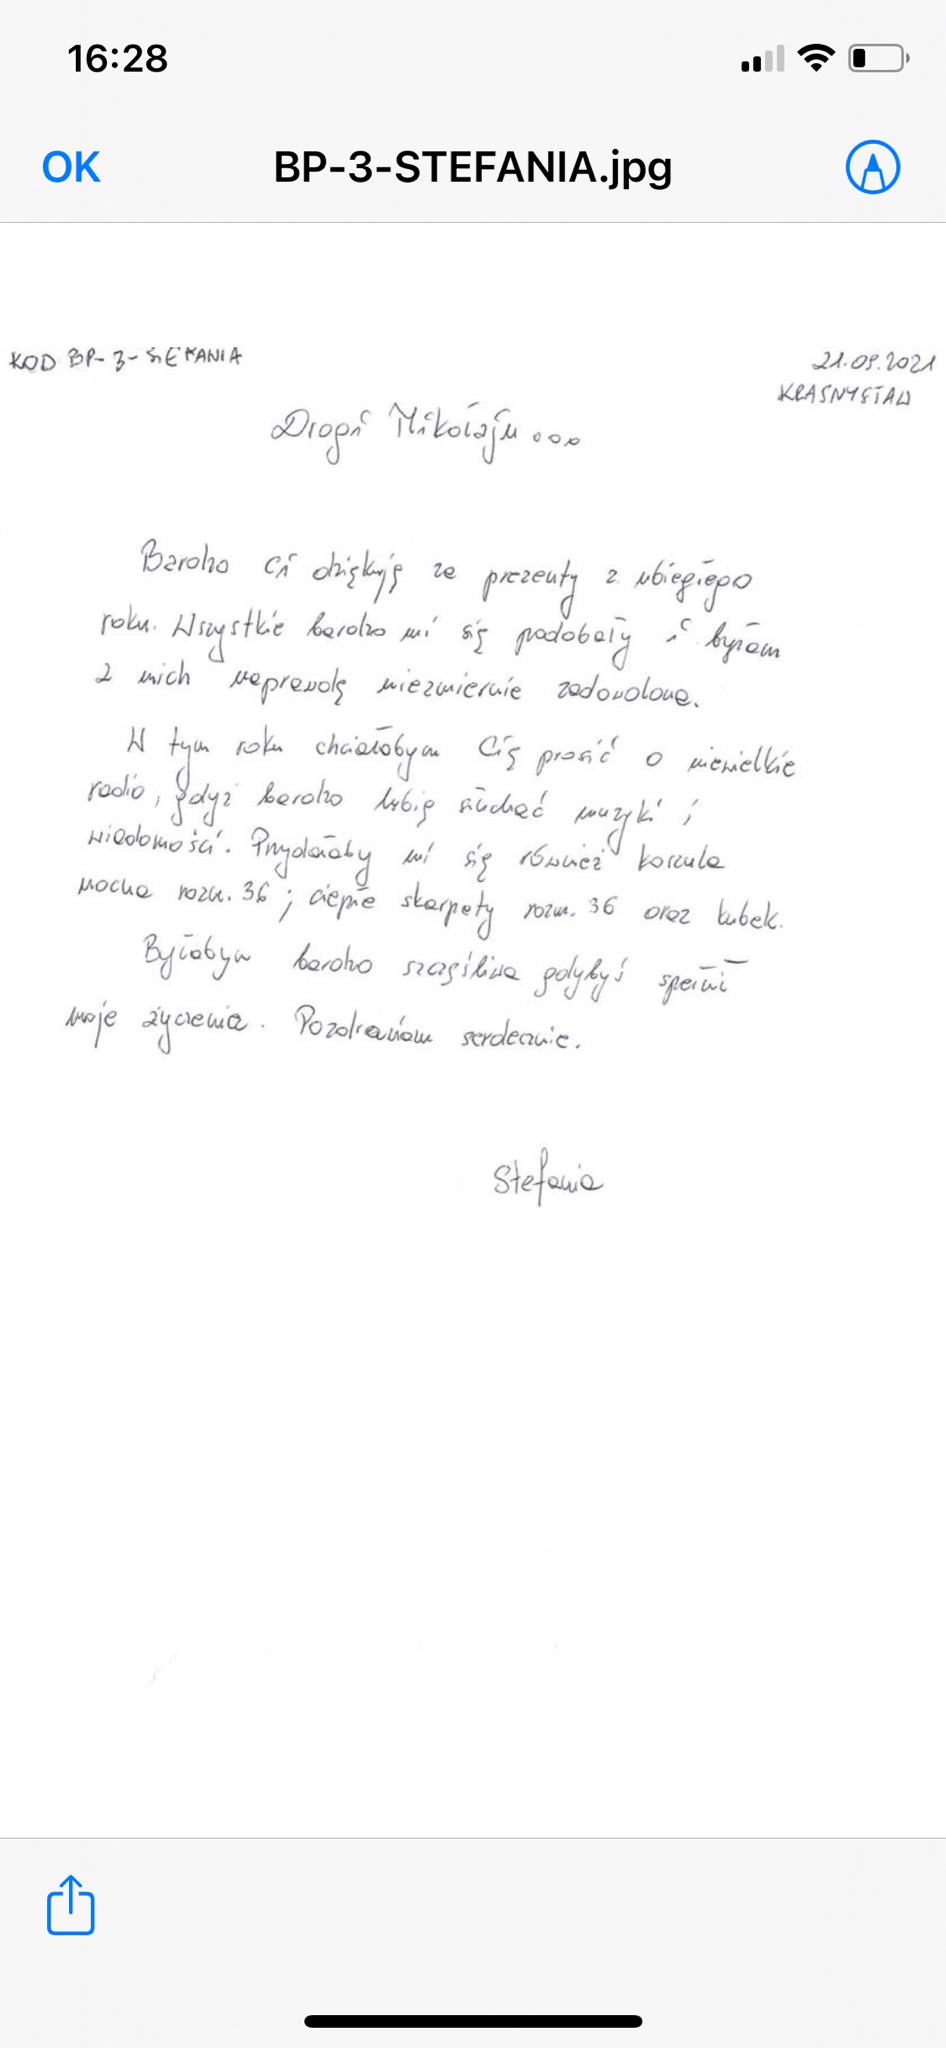 16:28
OK
BP-3-STEFANIA.jpg
KOD BP-3-STEFANIA
21.09.2021
KRASNYSTAW
Drogi Mikołaju...
Bardzo Ci dziękuję za prezenty z ubiegłego
roku. Wszystkie bardzo mi się podobały i byłam
z nich naprawdę niezmiernie zadowolona.
W tym roku chciałabym Cię prosić o niewielkie
radio, gdyż bardzo lubię słuchać muzyki i
wiadomości. Przydałaby mi się również koszula
nocna rozm. 36; ciepłe skarpety rozm. 36 oraz kubek.
Byłabym bardzo szczęśliwa gdybyś spełnił
moje życzenia. Pozdrawiam serdecznie.
Stefania